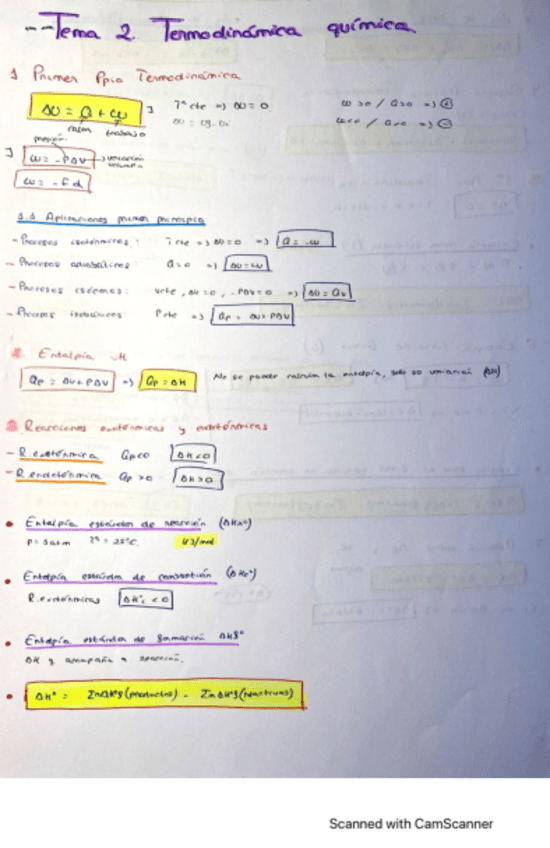 --Tema 2. Termodinámica química.
1 Primer Ppio Termodinámica
ΔU = Q + W Tª cte => ΔU = 0. W>0 / Q>0 => +
calor trabajo W<0 / Q<0 => -
presión
W = -PΔV variación volumen
W = -F·d
1.1 Aplicaciones primer principio
- Procesos isotérmicos: T cte => ΔU=0 => Q = -W
- Procesos adiabáticos: Q=0 => ΔU=W
- Procesos isócoros: Vcte, ΔV=0, -PΔV=0 => ΔU=Qv
- Procesos isobáricos: Pcte => Qp = ΔU+PΔV
2. Entalpía H
Qp = ΔU+PΔV => Qp = ΔH No se puede calcular la entalpía, solo su variación (ΔH)
Reacciones exotérmicas y endotérmicas
- R. exotérmica Qp<0 ΔH<0
- R. endotérmica Qp>0 ΔH>0
• Entalpía estándar de reacción
P = 1 atm Tª = 25ºC. KJ/mol
• Entalpía estándar de combustión (ΔHcº)
R. exotérmicas ΔHºc <0
• Entalpía estándar de formación ΔHfº
ΔH y acompaña a reacción.
• ΔHº = ΣnΔHºf(productos) - ΣnΔHºf(reactivos)
Scanned with CamScanner